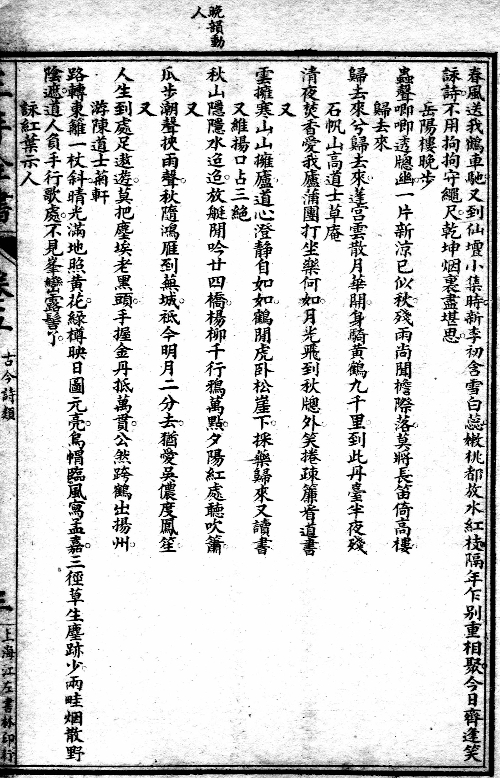 晚韻動人
春風送我鶴車馳又到仙壇小集時新李初含雪白蕊嫩桃都放水紅枝隔年乍別重相聚今日齊逢笑
詠詩不用拘拘守繩尺乾坤烟裏盡堪思
岳陽樓晚步
蟲聲唧唧透牕幽一片新涼已似秋殘雨尚聞檐際落莫將長笛倚高樓
歸去來
歸去來兮歸去來蓬宫雲散月華開身騎黃鶴九千里到此丹臺半夜殘
石帆山高道士草庵
清夜焚香愛我廬蒲團打坐樂何如月光飛到秋牕外笑捲疎簾看道書
又
雲擁寒山山擁廬道心澄静自如如鶴閒虎卧松崖下採藥歸來又讀書
又維揚口占三絕
秋山隱隱水迢迢放艇閒吟廿四橋楊柳千行鴉萬點夕陽紅處聽吹簫
又
瓜步潮聲挾雨聲秋隨鴻雁到蕪城祗今明月二分去猶愛吳儂度鳳笙
又
人生到處足遨遊莫把塵埃老黑頭手握金丹抵萬貫公然跨鶴出揚州
游陳道士菊軒
路轉東籬一杖斜晴光滿地照黃花緑樽映日圖元亮烏帽臨風寫孟嘉三徑草生塵跡少兩畦烟散野
陰遮道人負手行歌處不見峯巒露髻丫
詠紅葉示人
卷五
古今詩類
三
上海江左書林印行